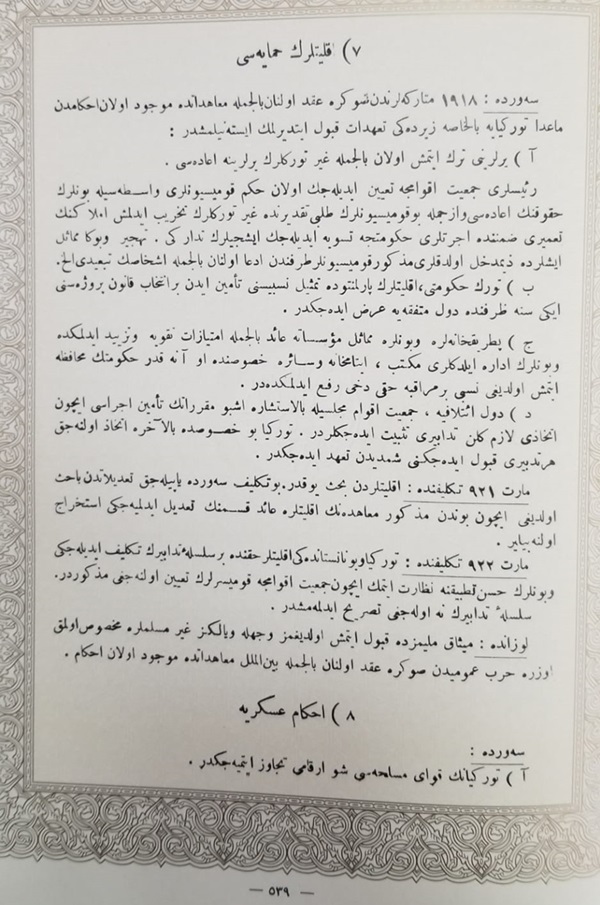 ٧) اقليتلرك حمايه‌سى
سه‌ورده : ١٩١٨ متاركه‌لرندن صوكره عقد اولنان بالجمله معاهداتده موجود اولان احكامدن
ماعدا توركيايه بالخاصه زيرده‌كى تعهدات قبول ايتديرلمك ايسته‌نيلمشدر :
آ ) يرلرينى ترك ايتمش اولان بالجمله غير توركلرك يرلرينه اعاده‌سى .
رئيسلرى جمعيت اقوامجه تعيين ايديله‌جك اولان حكم قوميسيونلرى واسطه‌سيله بونلرك
حقوقنك اعاده‌سى واز جمله بو قوميسيونلرك طلبى تقديرنده غير توركلرك تخريب ايدلمش املاكنك
تعميرى ضمننده اجرتلرى حكومتجه تسويه ايديله‌جك ايشجيلرك تداركى . تهجير وبوكا مماثل
ايشلرده ذيمدخل اولدقلرى مذكور قوميسيونلر طرفندن ادعا اولنان بالجمله اشخاصك تبعيدى الخ.
ب ) تورك حكومتى، اقليتلرك پارلمنتوده تمثيل نسبيسنى تأمين ايدن بر انتخاب قانون پروژه‌سنى
ايكى سنه ظرفنده دول متفقه‌يه عرض ايده‌جكدر .
ج ) پطريقخانه‌لره وبونلره مماثل مؤسساته عائد بالجمله امتيازات تقويه وتزييد ايدلمكده
وبونلرك اداره ايلدكلرى مكتب ، ايتامخانه وسائره خصوصنده او آنه قدر حكومتك محافظه
ايتمش اولديغى نسبى بر مراقبه حقى دخى رفع ايدلمكده‌در .
د ) دول ائتلافيه ، جمعيت اقوام مجلسيله بالاستشاره اشبو مقرراتك تأمين اجراسى ايچون
اتخاذى لازم كلن تدابيرى تثبيت ايده‌جكلردر . توركيا بو خصوصده بالآخره اتخاذ اولنه‌جق
هر تدبيرى قبول ايده‌جكنى شمديدن تعهد ايده‌جكدر .
مارت ٩٢١ تكليفنده : اقليتلردن بحث يوقدر. بو تكليف سه‌ورده ياپيله‌جق تعديلاتدن باحث
اولديغى ايچون بوندن مذكور معاهده‌نك اقليتلره عائد قسمنك تعديل ايدلميه‌جكى استخراج
اولنه‌بيلير .
مارت ٩٢٢ تكليفنده : توركيا ويونانستانده‌كى اقليتلر حقنده بر سلسلهٔ تدابيرك تكليف ايديله‌جكى
وبونلرك حسن تطبيقنه نظارت ايتمك ايچون جمعيت اقوامجه قوميسرلرك تعيين اولنه‌جغى مذكوردر.
سلسلهٔ تدابيرك نه اوله‌جغى تصريح ايدلمه‌مشدر .
لوزانده : ميثاق مليمزده قبول ايتمش اولديغمز وجهله ويالكز غير مسلملره مخصوص اولمق
اوزره حرب عموميدن صوكره عقد اولنان بالجمله بين‌الملل معاهداتده موجود اولان احكام .
٨ ) احكام عسكريه
سه‌ورده :
آ ) توركيانك قواى مسلحه‌سى شو ارقامى تجاوز ايتميه‌جكدر .
— ٥٣٩ —